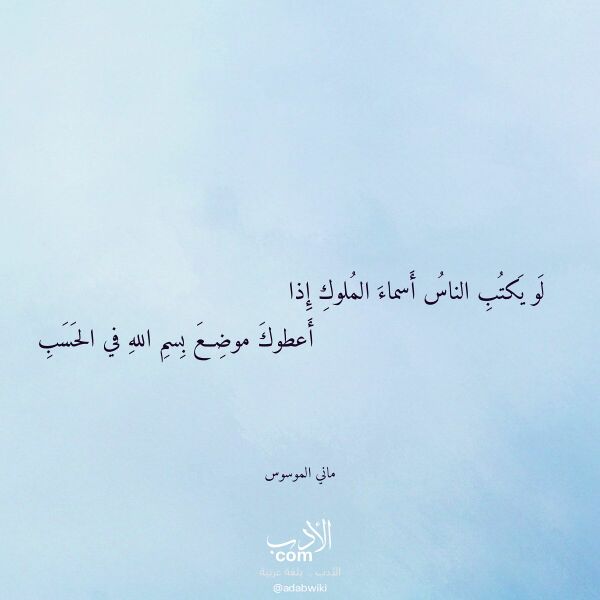 لَو يَكتُبِ الناسُ أَسماءَ المُلوكِ إِذا
أَعطوكَ موضِعَ بِسمِ اللهِ في الحَسَبِ
ماني الموسوس
الأدب
com
الأدب .. بلغة عربية
@adabwiki